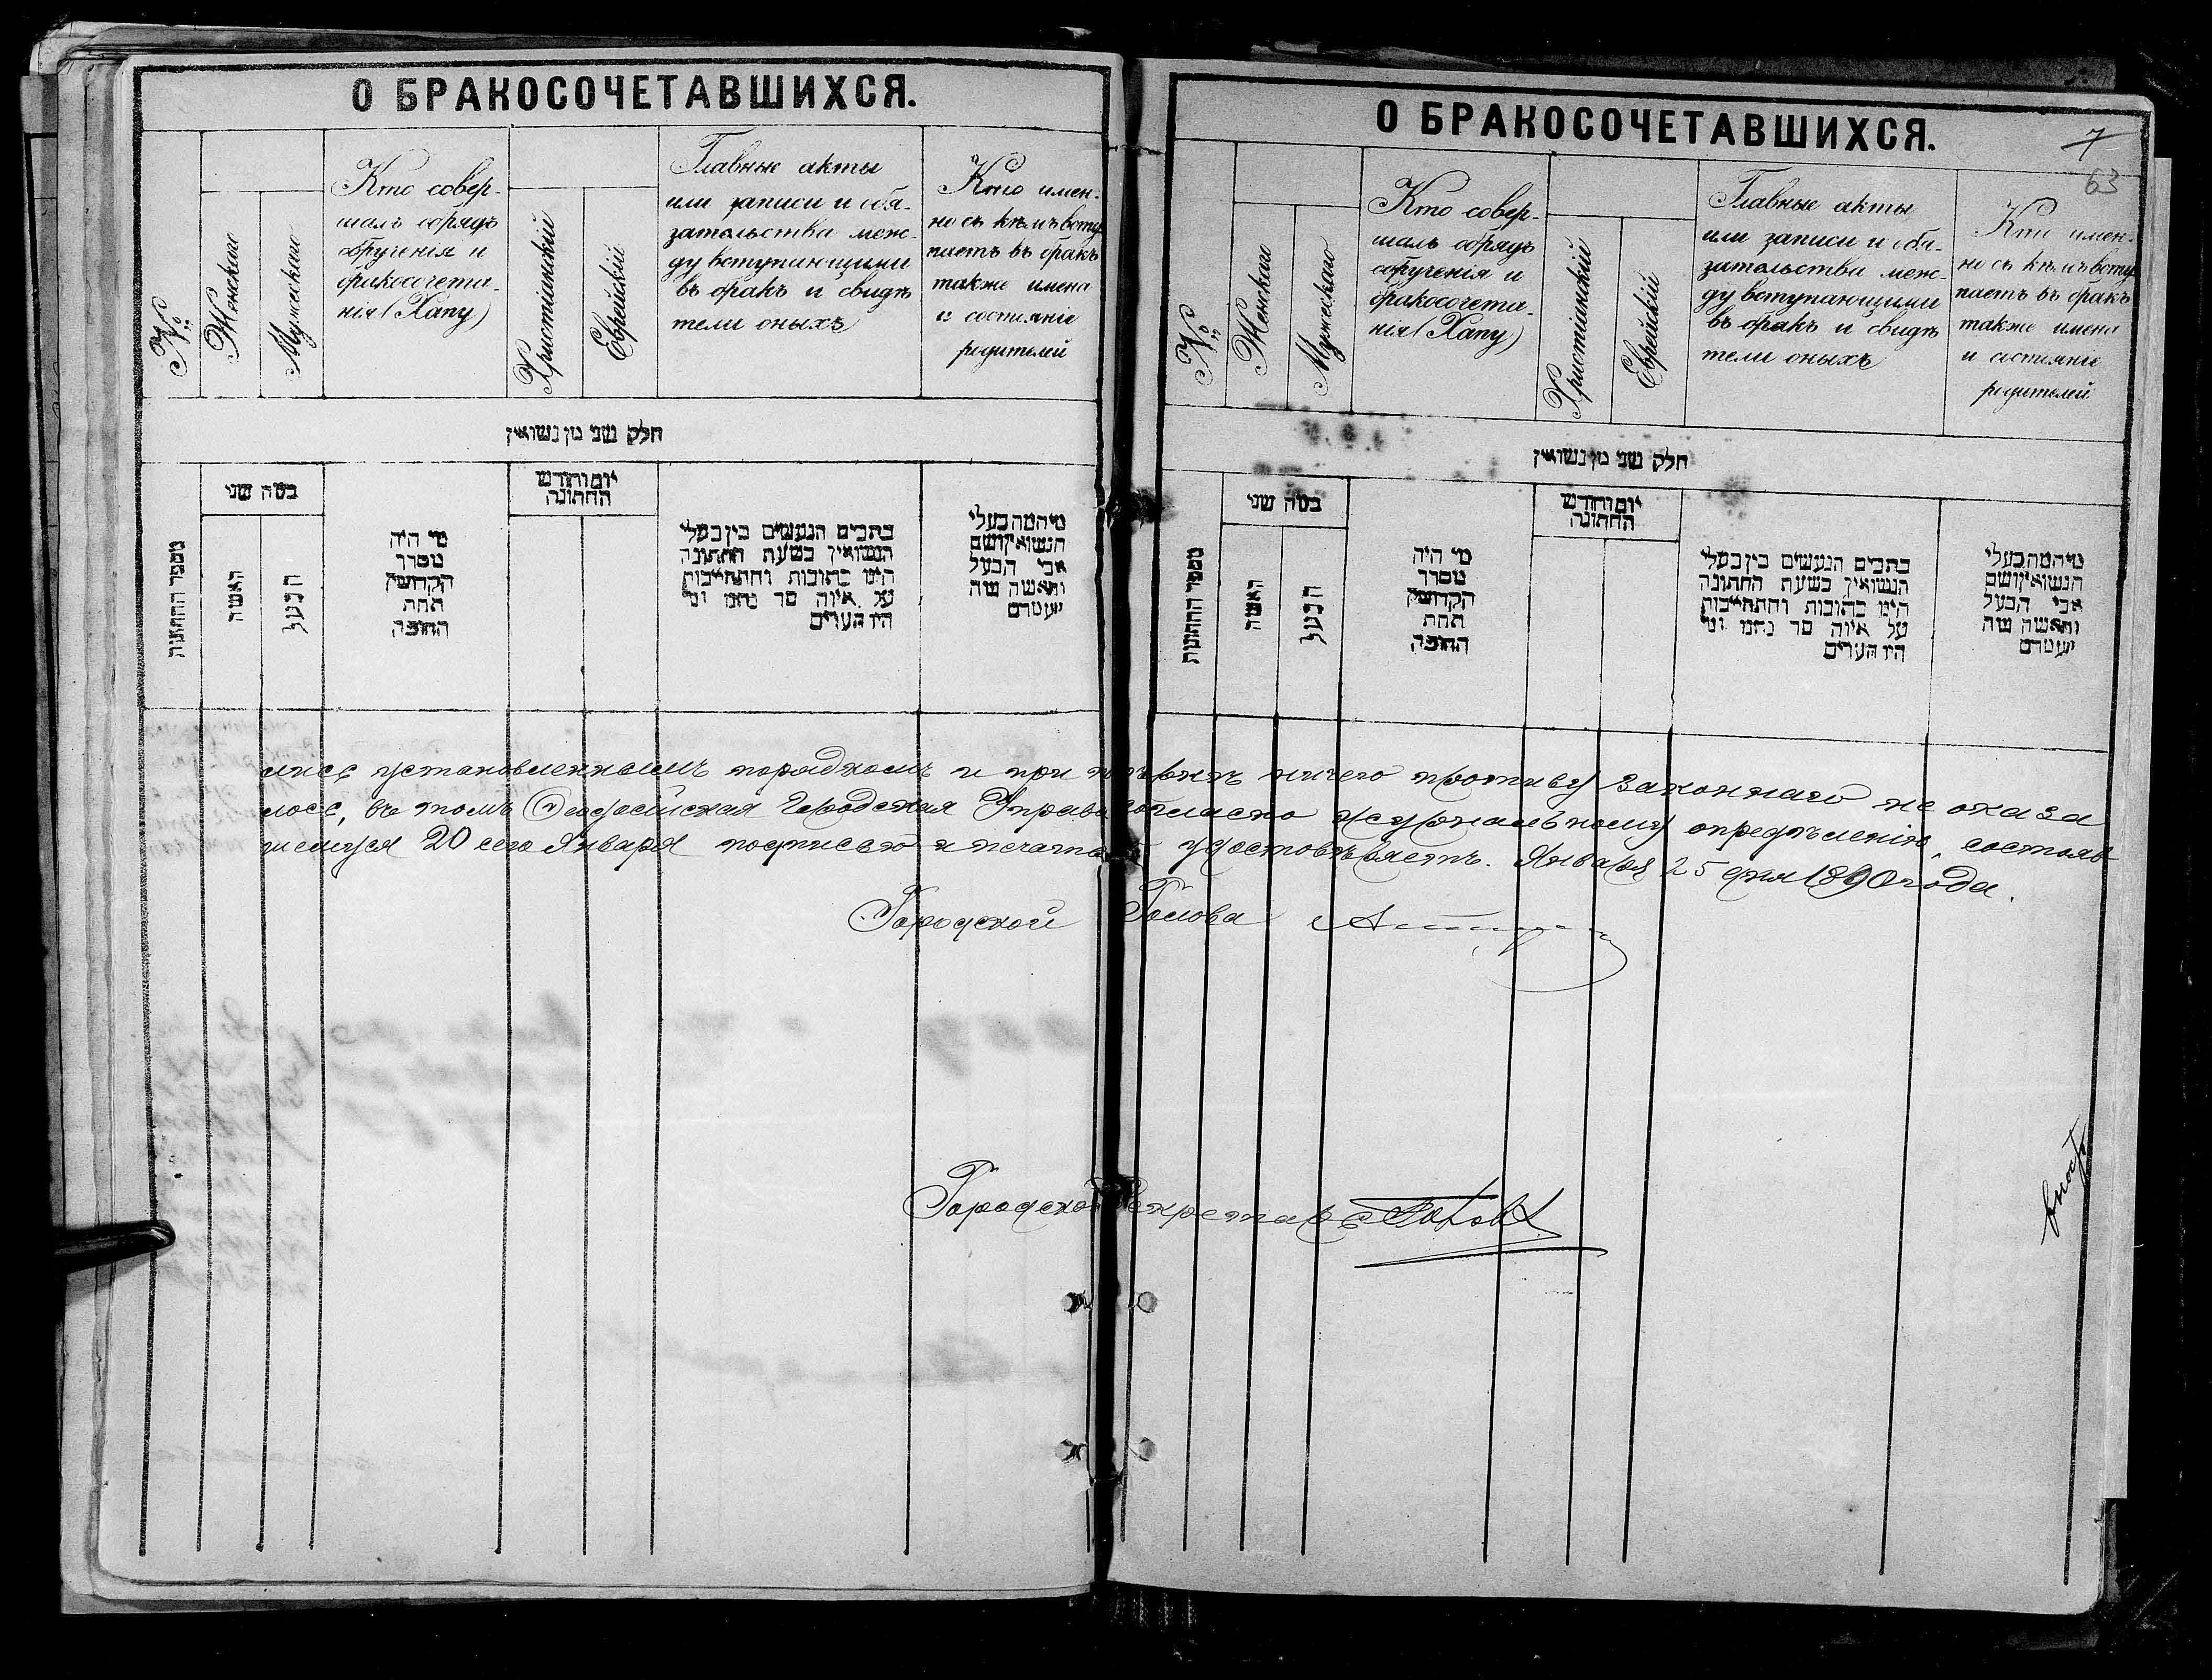 О БРАКОСОЧЕТАВШИХСЯ.
№
Женскаго
Мужескаго
Кто совер-
шалъ обрядъ
обрученія и
бракосочета-
нія (Хапу)
Христіанскій
Еврейскій
Главные акты
или записи и обя-
зательства меж-
ду вступающими
въ бракъ и свидѣ
тели оныхъ
Кто имен-
но съ кѣмъ всту
паетъ въ бракъ
также имена
и состояніе
родителей
חלק שני מן נשואין
מספר החתונות
כמה שני
האשה
הבעל
מי היה
מסדר
הקדושין
תחת
החופה
יום וחודש
החתונה
כתבים הנעשים בין בעלי
הנשואין בשעת החתונה
היינו כתובות והתחייבות
על איזה סך נתנו ומי
היו העדים
מי המה בעלי
הנשואין ושם
אבי הבעל
והאשה ומה
מעמדם
О БРАКОСОЧЕТАВШИХСЯ.
7
63
№
Женскаго
Мужескаго
Кто совер-
шалъ обрядъ
обрученія и
бракосочета-
нія (Хапу)
Христіанскій
Еврейскій
Главные акты
или записи и обя-
зательства меж-
ду вступающими
въ бракъ и свидѣ
тели оныхъ
Кто имен-
но съ кѣмъ всту
паетъ въ бракъ
также имена
и состояніе
родителей
חלק שני מן נשואין
מספר החתונות
כמה שני
האשה
הבעל
מי היה
מסדר
הקדושין
תחת
החופה
יום וחודש
החתונה
כתבים הנעשים בין בעלי
הנשואין בשעת החתונה
היינו כתובות והתחייבות
על איזה סך נתנו ומי
היו העדים
מי המה בעלי
הנשואין ושם
אבי הבעל
והאשה ומה
מעמדם
лись установленнымъ порядкомъ и при повѣркѣ ничего противу законнаго не оказа
лось, въ томъ Ѳеодосійская Городская Управа согласно журнальному опредѣленію, состояв
шемуся 20 сего Января подписью и печатью удостовѣряетъ. Января 25 дня 1890 года.
Городской Голова
Городской Секретарь